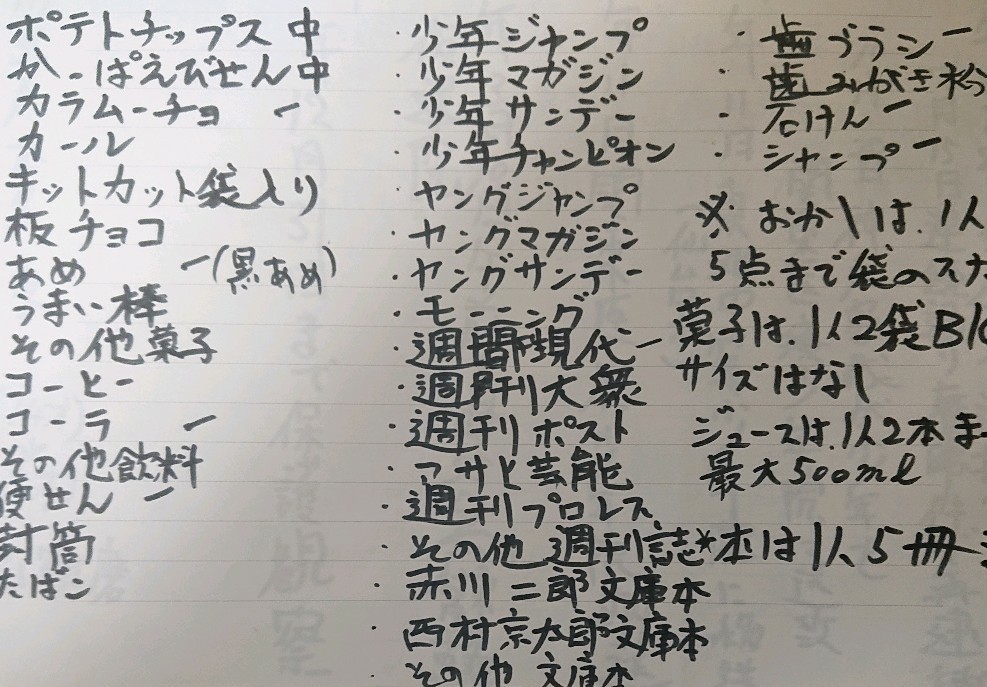 ポテトチップス 中
かっぱえびせん 中
カラムーチョ ー
カール
キットカット袋入り
板チョコ
あめ ー(黒あめ)
うまい棒
その他菓子
コーヒー
コーラ ー
その他飲料
便せん ー
封筒
たばこ
・少年ジャンプ
・少年マガジン
・少年サンデー
・少年チャンピオン
・ヤングジャンプ
・ヤングマガジン
・ヤングサンデー
・モーニング
・週間現代ー
・週刊大衆
・週刊ポスト
・アサヒ芸能
・週刊プロレス
・その他 週刊誌*本は1人5冊
・赤川二郎文庫本
・西村京太郎文庫本
・その他 文庫本
・歯ブラシー
・歯みがき粉
・石けんー
・シャンプー
※おかしは、1人
5点まで袋のスナ
菓子は、1人2袋BIG
サイズはなし
ジュースは、1人2本ま
最大500ml